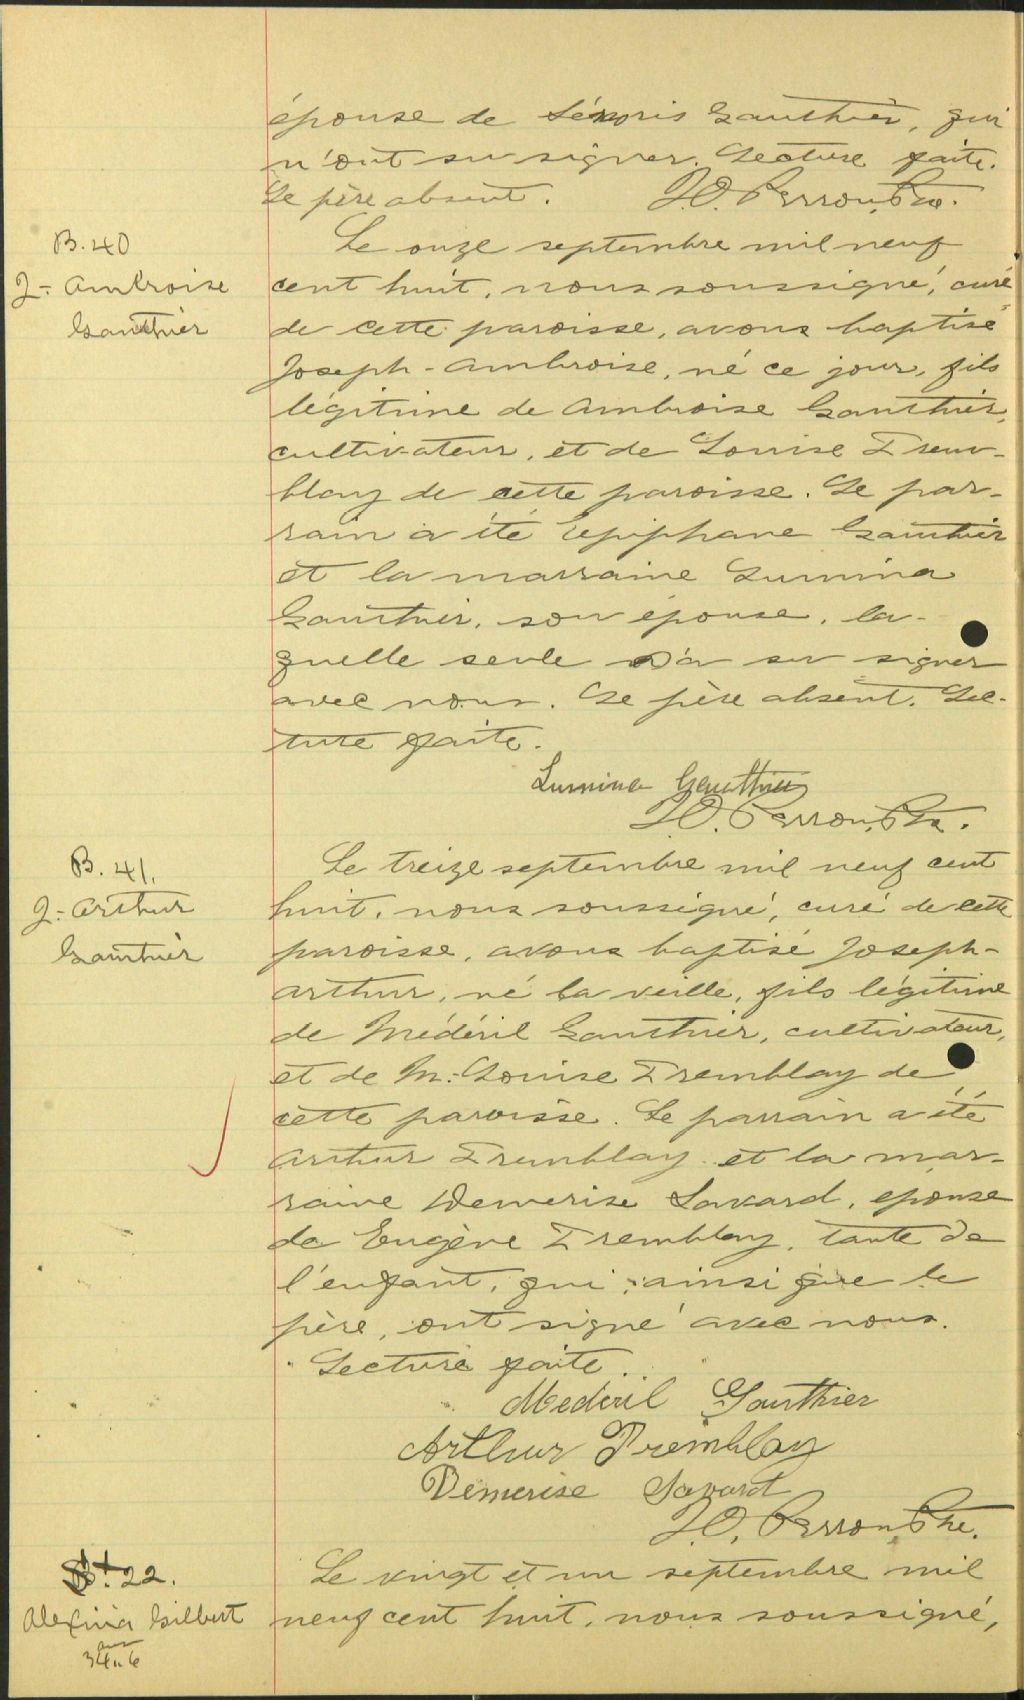 épouse de Lénoris Gauthier, qui
n'ont su signer. Lecture faite.
Le père absent. J.O. Perron, Ptre.
B. 40
J-Ambroise
Gauthier
Le onze septembre mil neuf
cent huit, nous soussigné, curé
de cette paroisse, avons baptisé
Joseph-Ambroise, né ce jour, fils
légitime de Ambroise Gauthier,
cultivateur, et de Louise Trem-
blay de cette paroisse. Le par-
rain a été Epiphane Gauthier
et la marraine Lumina
Gauthier, son épouse, la-
quelle seule a su signer
avec nous. Le père absent. Lec-
ture faite.
Lumina Gauthier
J.O. Perron, Ptre.
B. 41.
J-Arthur
Gauthier
Le treize septembre mil neuf cent
huit, nous soussigné, curé de cette
paroisse, avons baptisé Joseph-
Arthur, né la veille, fils légitime
de Médéril Gauthier, cultivateur,
et de M.-Louise Tremblay de
cette paroisse. Le parrain a été
Arthur Tremblay et la mar-
raine Demerise Savard, épouse
de Eugène Tremblay, tante de
l'enfant, qui, ainsi que le
père, ont signé avec nous.
Lecture faite.
Médéril Gauthier
Arthur Tremblay
Démerise Savard
J.O. Perron, Ptre.
S. 22.
Alexina Gilbert
34 ans 6
Le vingt et un septembre mil
neuf cent huit, nous soussigné,